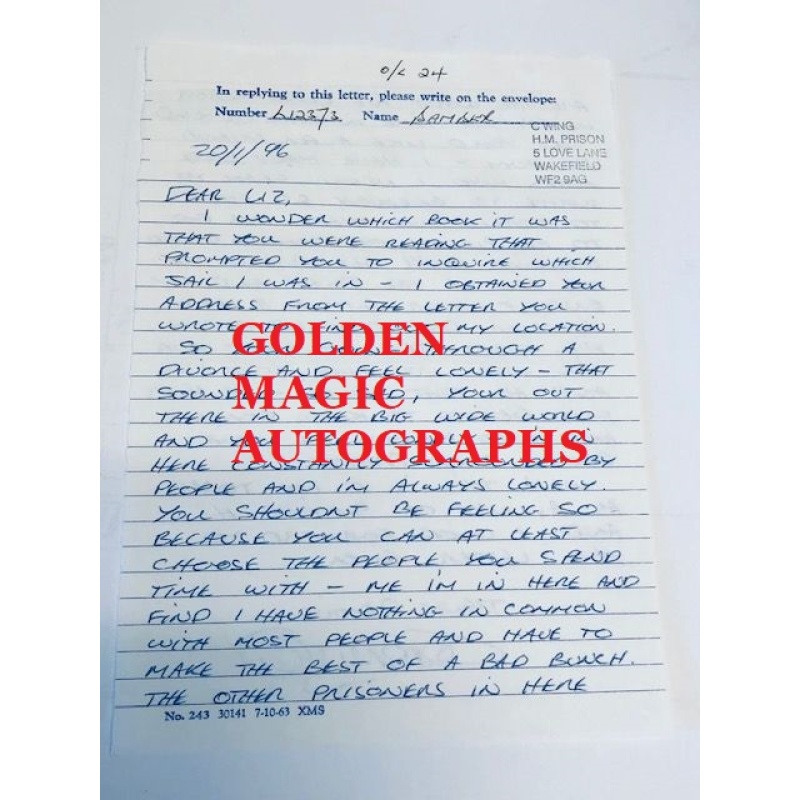 o/c 24
In replying to this letter, please write on the envelope:
Number L12373 Name BAMBER
C WING
H.M. PRISON
5 LOVE LANE
WAKEFIELD
WF2 9AG
20/1/96
DEAR LIZ,
I WONDER WHICH BOOK IT WAS
THAT YOU WERE READING THAT
PROMPTED YOU TO INQUIRE WHICH
JAIL I WAS IN – I OBTAINED YOUR
ADDRESS FROM THE LETTER YOU
WROTE TO FIND MY LOCATION.
SO THROUGH A
DIVORCE AND FEEL LONELY – THAT
SOUNDED SO SAD, YOUR OUT
THERE IN THE BIG WIDE WORLD
AND YOU FEEL LONELY I'M IN
HERE CONSTANTLY SURROUNDED BY
PEOPLE AND I'M ALWAYS LONELY.
YOU SHOULDNT BE FEELING SO
BECAUSE YOU CAN AT LEAST
CHOOSE THE PEOPLE YOU SPEND
TIME WITH – ME I'M IN HERE AND
FIND I HAVE NOTHING IN COMMON
WITH MOST PEOPLE AND HAVE TO
MAKE THE BEST OF A BAD BUNCH.
THE OTHER PRISONERS IN HERE
No. 243 30141 7-10-63 XMS
GOLDEN
MAGIC
AUTOGRAPHS